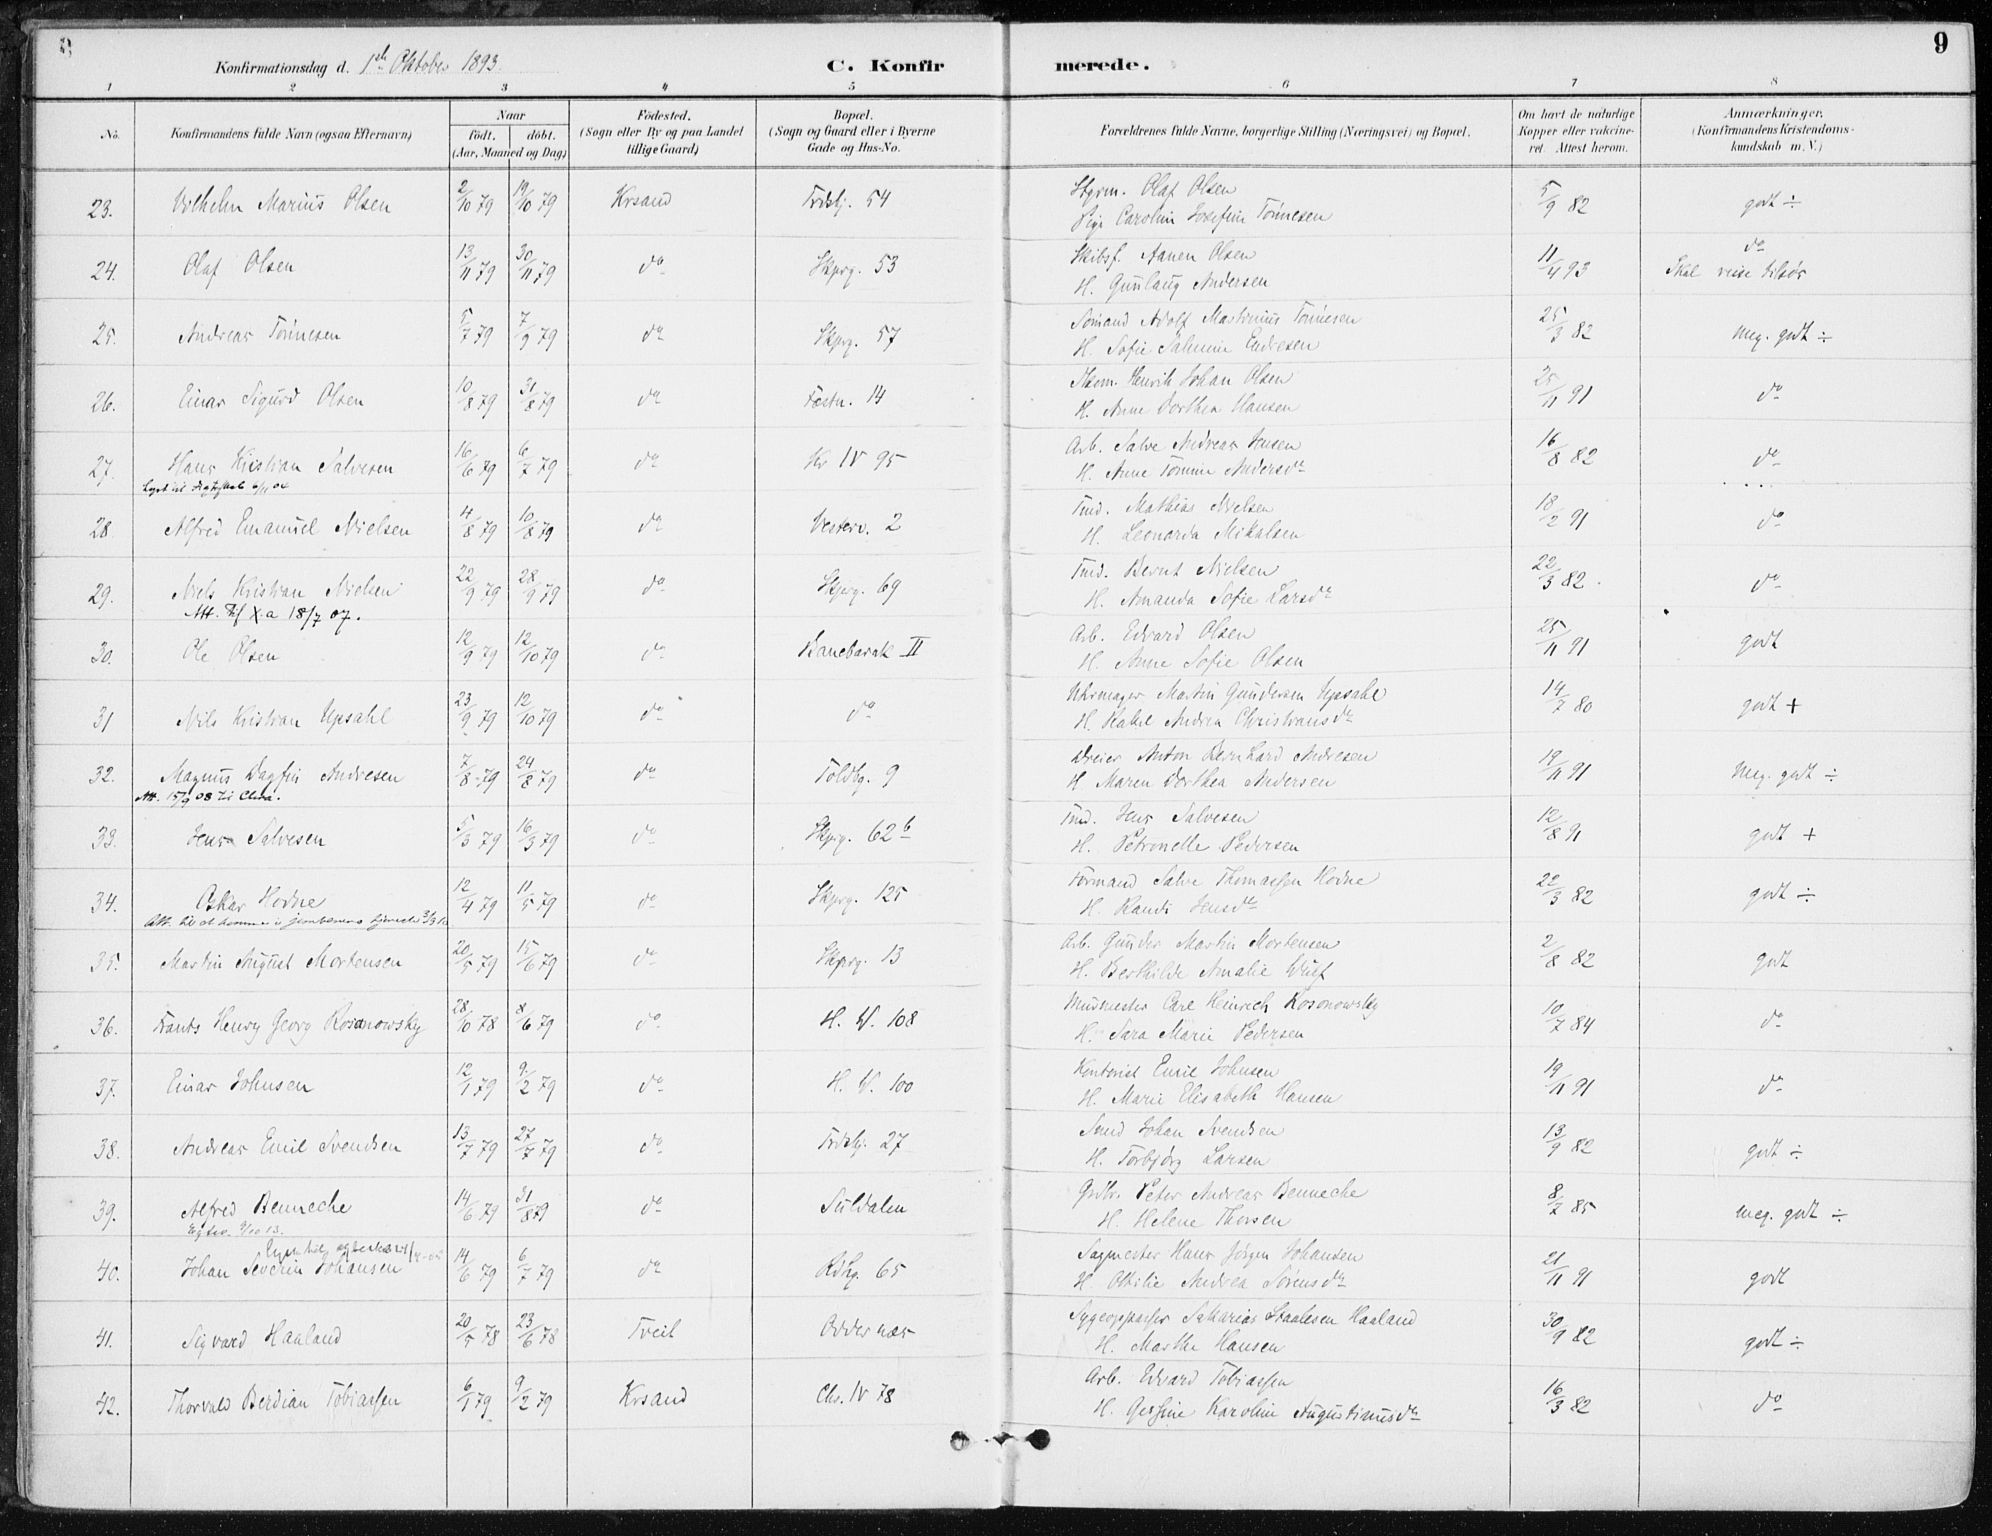 9
Konfirmationsdag d. 1ste Oktober 1893.
C. Konfirmerede.
1 2 3 4 5 6 7 8
No. | Konfirmandens fulde Navn (ogsaa Efternavn) | Naar födt. döbt. (Aar, Maaned og Dag) | Födested. (Sogn eller By og paa Landet tillige Gaard) | Bopæl. (Sogn og Gaard eller i Byerne Gade og Hus-No. | Forældrenes fulde Navne, borgerlige Stilling (Næringsvei) og Bopæl. | Om havt de naturlige Kopper eller vakcineret. Attest herom. | Anmærkninger. (Konfirmandens Kristendomskundskab m. V.)
23. Vilhelm Marius Olsen 2/10 79 19/10 79 Krsand 54 Styrm. Olaf Olsen 5/9 82 godt ÷
Pige Caroline Josefine Tönnesen
24. Olaf Olsen 13/11 79 30/11 79 do Skprg. 53 Skibsf. Aanen Olsen 11/4 93 do
H. Gunlaug Andersen Skal reise tilsös
25. Andreas Tönnesen 5/7 79 7/9 79 do Skprg. 57 Sömand Adolf Martinius Tönnesen 25/3 82 meg. godt ÷
H. Sofie Salmine Endresen
26. Einar Sigurd Olsen 10/8 79 31/8 79 do Festn. 14 Henrik Johan Olsen 25/11 91 do
H. Anne Dorthea Hansen
27. Hans Kristian Salvesen 16/6 79 6/7 79 do Kr IV 95 Arb. Salve Andreas Jensen 16/8 82 do
Lyst til Ægteskab 6/11 04 H. Anne Tomine Andersdr
28. Alfred Emanuel Nielsen 4/8 79 10/8 79 do Vesterv. 2 Tmd. Mathias Nielsen 18/2 91 do
H. Leonarda Mikalsen
29. Niels Kristian Nielsen 22/9 79 28/9 79 do Skprg. 69 Tmd. Bernt Nielsen 22/3 82. do
Att. 18/7 07. H. Amanda Sofie Larsdr
30. Ole Olsen 12/9 79 12/10 79 do Banebarak II Arb. Edvard Olsen 25/11 91 godt
H. Anne Sofie Olsen
31 Nils Kristian Upsahl 23/9 79 12/10 79 do do Uhrmager Martin Gundersen Upsahl 14/7 80 godt +
H. Rakel Andrea Christiansdr
32. Magnus Dagfin Andresen 7/8 79 24/8 79 do Toldbg. 9 Dreier Anton Bernhard Andresen 19/11 91 Meg. godt ÷
Att. 15/9 08 til Chra. H Maren Dorthea Andersen
33. Jens Salvesen 5/3 79 16/3 79 do Skprg. 62b Tmd. Jens Salvesen 12/8 91 godt +
H. Petronelle Pedersen
34. Oskar Hodne 12/4 79 11/5 79 do Skprg. 125 Formand Salve Thomassen Hodne 22/3 82 godt ÷
Att. til at komme i jernbanens tjeneste H. Randi Jensdr
35. Martin August Mortensen 20/5 79 15/6 79 do Skprg. 13 Arb. Gunder Martin Mortensen 2/8 82 godt
H. Berthilde Amalie Wulf
36. Frants Henry Georg Rosonowsky 28/10 78 8/6 79 do H. V. 108 Carl Heinrich Rosonowsky 10/7 84 do
H. Sara Marie Pedersen
37. Einar Johnsen 12/1 79 9/2 79 do H. V. 100 Kontorist Emil Johnsen 19/11 91 do
H. Marie Elisabeth Hansen
38. Andreas Emil Svendsen 13/7 79 27/7 79 do 27 Smd Johan Svendsen 13/9 82 godt ÷
H. Torbjörg Larsen
39. Alfred Benneche 14/6 79 31/8 79 do Suldalen Peter Andreas Benneche 8/7 85 meg. godt ÷
9/10 13. H. Helene Thorsen
40. Johan Severin Johansen 14/6 79 6/7 79 do Rdhg. 65 Sagmester Hans Jörgen Johansen 21/11 91 godt
H. Ottilie Andrea Sörensdr
41. Sigvard Haaland 20/5 78 23/6 78 Tveit Oddernæs Sygeopasser Sakarias Staalesen Haaland 30/9 82 godt ÷
H. Marthe Hansen
42. Thorvald Berdian Tobiassen 6/1 79 9/2 79 Krsand Chs. IV 78 Arb. Edvard Tobiassen 16/3 82 do
H. Gessine Karoline Augustinusdr